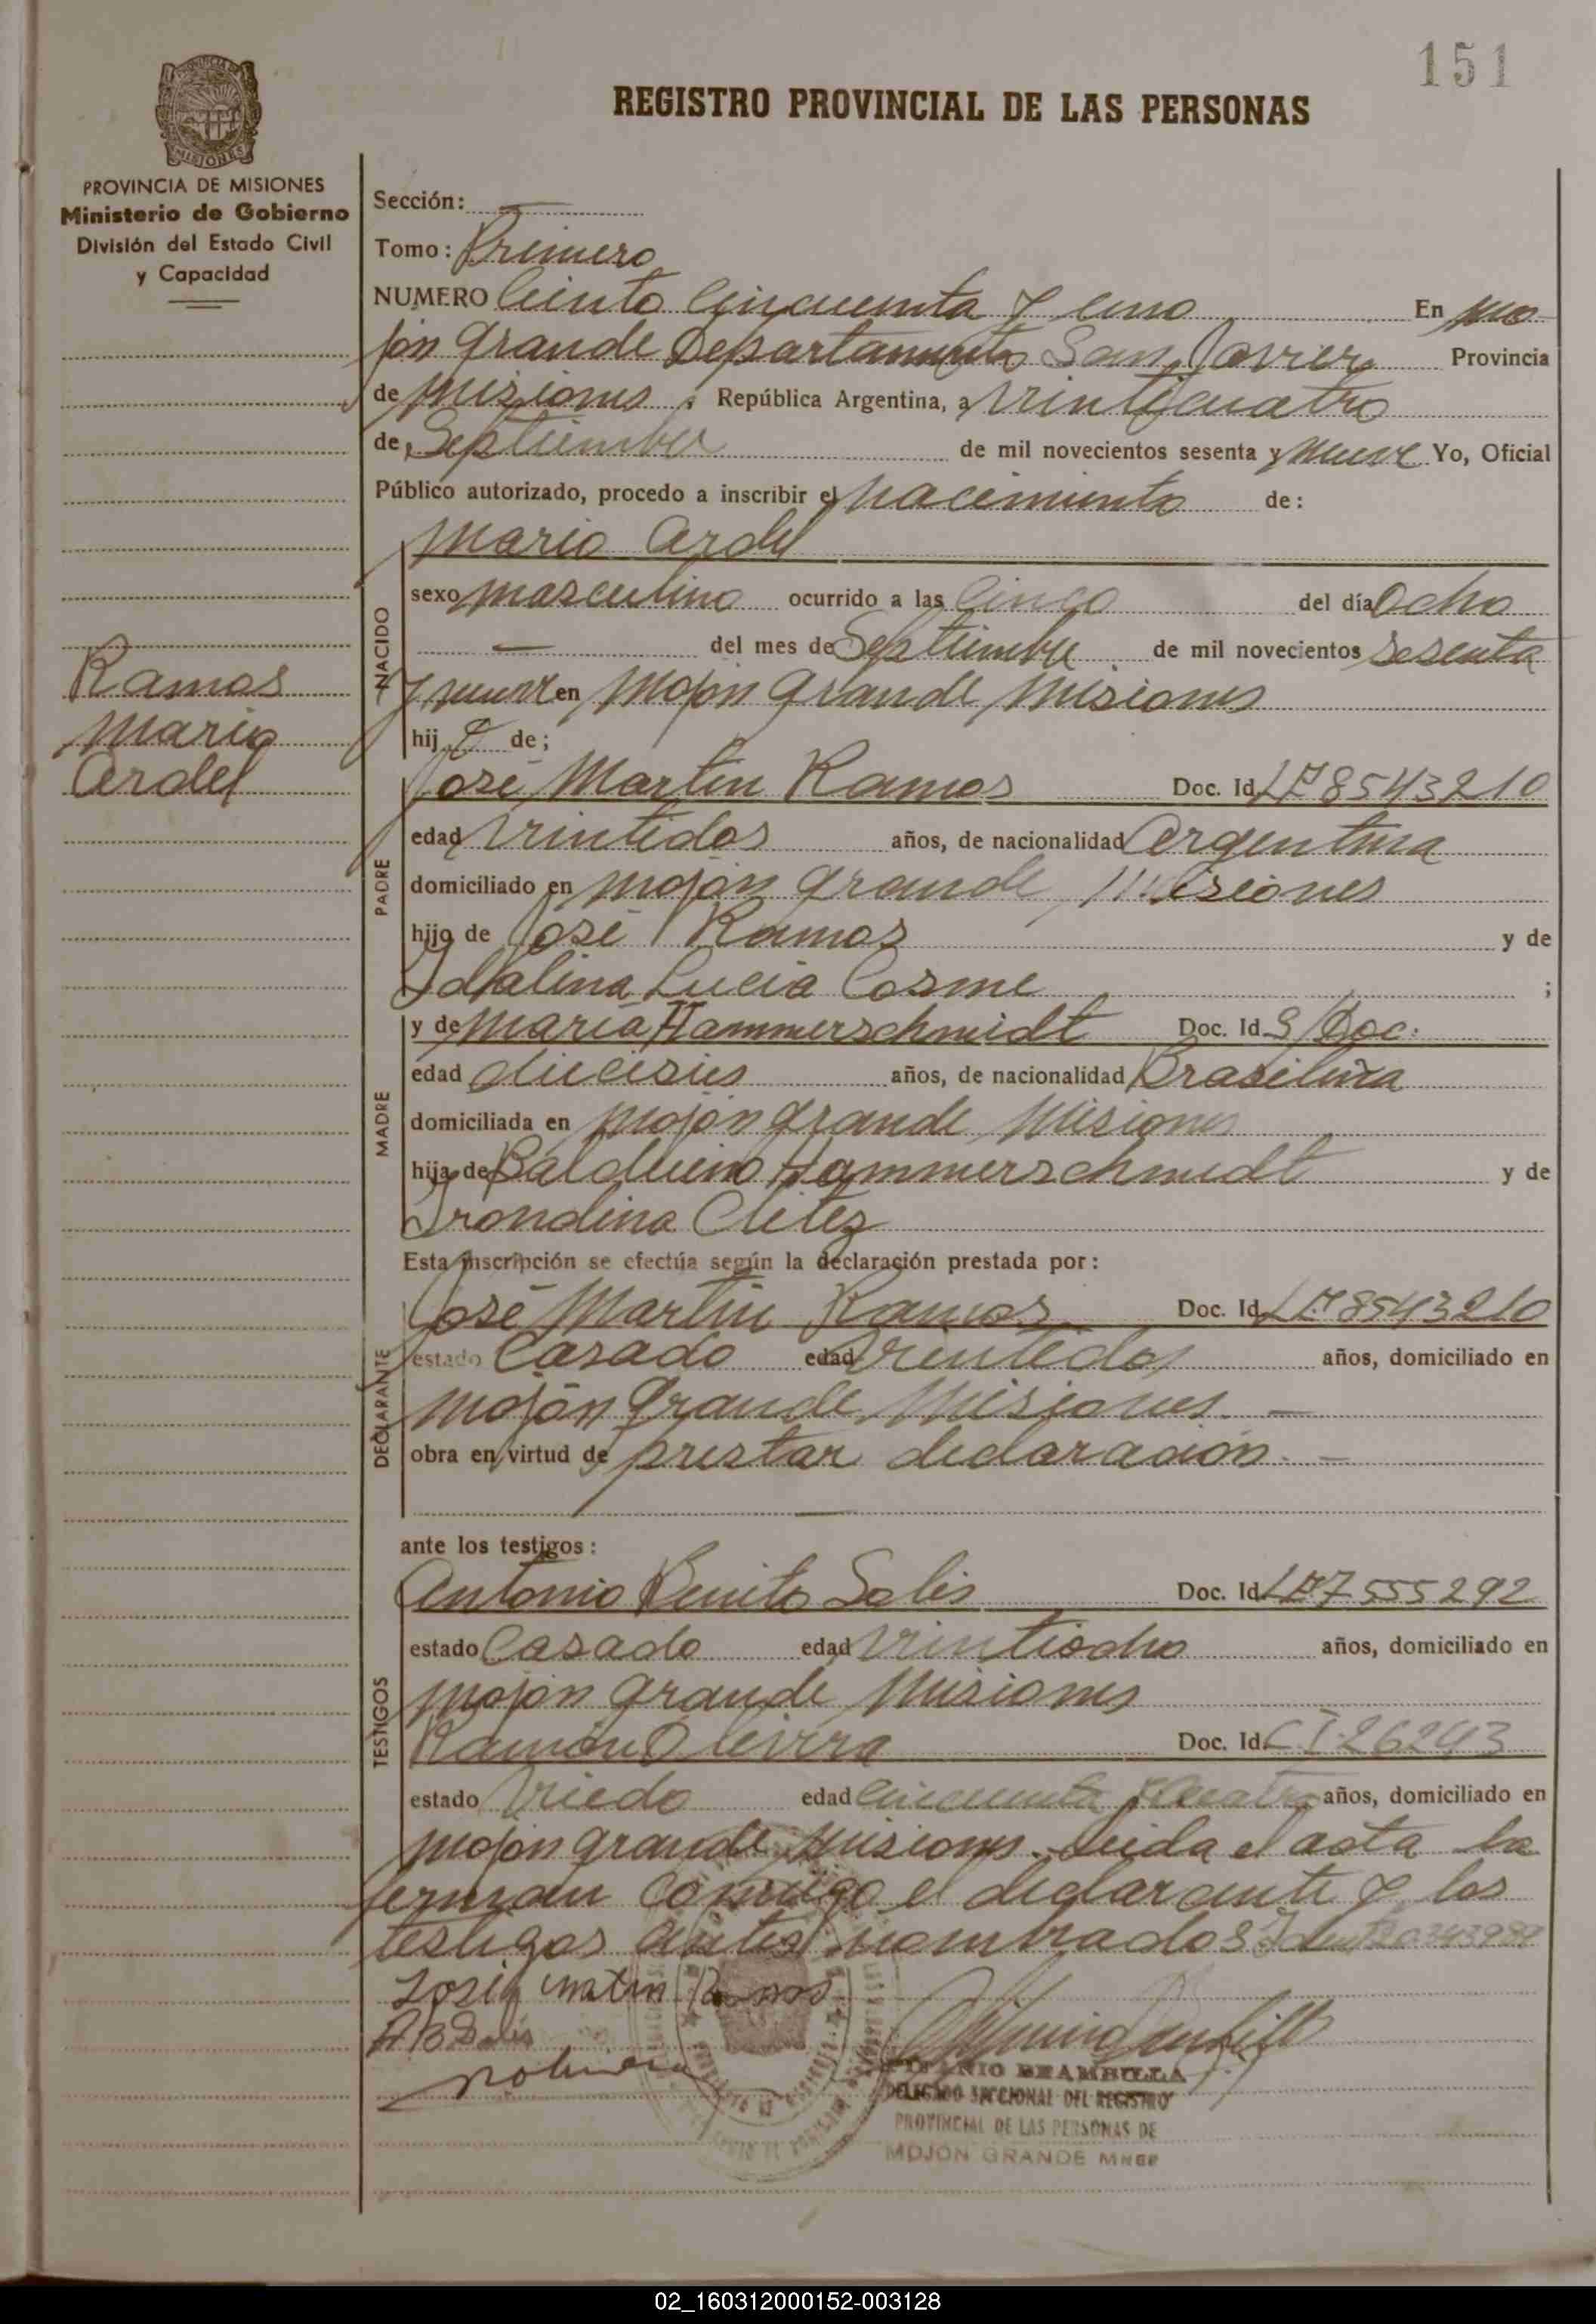 151
REGISTRO PROVINCIAL DE LAS PERSONAS
PROVINCIA DE MISIONES
Ministerio de Gobierno
División del Estado Civil
y Capacidad
Ramos
Mario
Ardel
Sección: —
Tomo: Primero
NUMERO Ciento Cincuenta y uno En Mo-
jón Grande Departamento San Javier Provincia
de Misiones, República Argentina, a Veinticuatro
de Septiembre de mil novecientos sesenta y nueve Yo, Oficial
Público autorizado, procedo a inscribir el nacimiento de:
NACIDO
Mario Ardel
sexo masculino ocurrido a las Cinco del día Ocho
— del mes de Septiembre de mil novecientos Sesenta
y nueve en Mojón Grande Misiones
hij o de;
PADRE
José Martin Ramos Doc. Id. LE 8543210
edad Veintidos años, de nacionalidad Argentina
domiciliado en Mojón Grande, Misiones
hijo de José Ramos y de
Idalina Lucia Cosme ;
MADRE
y de María Hammerschmidt Doc. Id. S/Doc.
edad dieciseis años, de nacionalidad Brasilera
domiciliada en Mojón Grande Misiones
hija de Balduino Hammerschmidt y de
Clitez
Esta inscripción se efectúa según la declaración prestada por:
DECLARANTE
José Martin Ramos Doc. Id. LE 8543210
estado Casado edad Veintidos años, domiciliado en
Mojón Grande, Misiones. —
obra en virtud de prestar declaración. —
ante los testigos:
TESTIGOS
Antonio Benito Solis Doc. Id. LE 7555292
estado Casado edad Veintiocho años, domiciliado en
Mojón Grande Misiones
Ramón Oleivera Doc. Id. C I 26243
estado Viudo edad Cincuenta y Cuatro años, domiciliado en
Mojón Grande, Misiones. Leida el acta la
firman conmigo el declarante y los
testigos antes nombrados
José Matin Ramos
A B Solis
BRAMBILLA
DELEGADO SECCIONAL DEL REGISTRO
PROVINCIAL DE LAS PERSONAS DE
MOJON GRANDE MNES
02_160312000152-003128